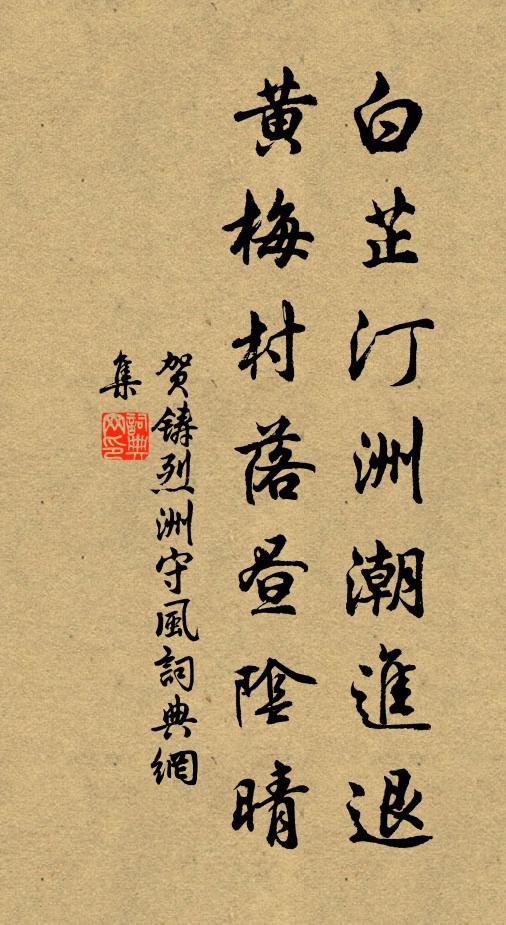 白芷汀洲潮進退
黃梅村落晝陰晴
賀鑄烈洲守風詞典網
集
詞典網印